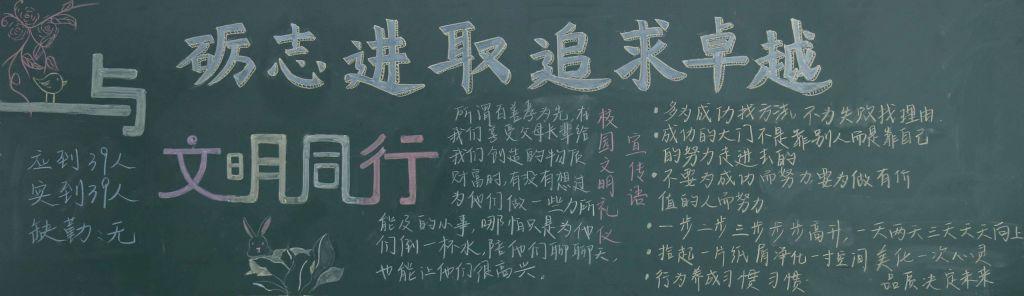 砺志进取追求卓越
与
文明同行
应到39人
实到39人
缺勤:无
所谓百善孝为先,在
我们享受父母长辈给
我们创造的物质
财富时,有没有想过
为他们做一些力所
能及的小事,哪怕只是为他
们倒一杯水,陪他们聊聊天,
也能让他们很高兴。
校园文明礼仪
宣传语
·多为成功找方法,不为失败找理由.
·成功的大门不是靠别人而是靠自己
的努力走进去的
·不要为成功而努力要为做有价
值的人而努力
·一步二步三步步步高升,一天两天三天天天向上
·拾起一片纸屑净化一寸空间美化一次心灵
·行为养成习惯 习惯 品质 未来